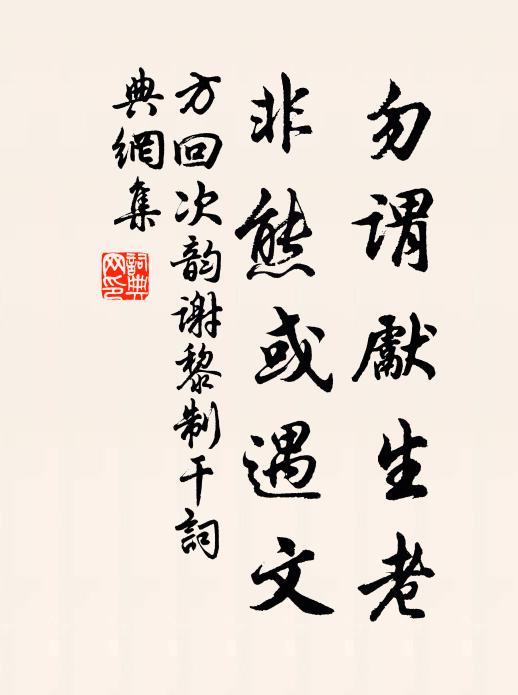 勿谓獻生老
非熊或遇文
方回次韵谢黎制干詞
典網集
詞典
网印